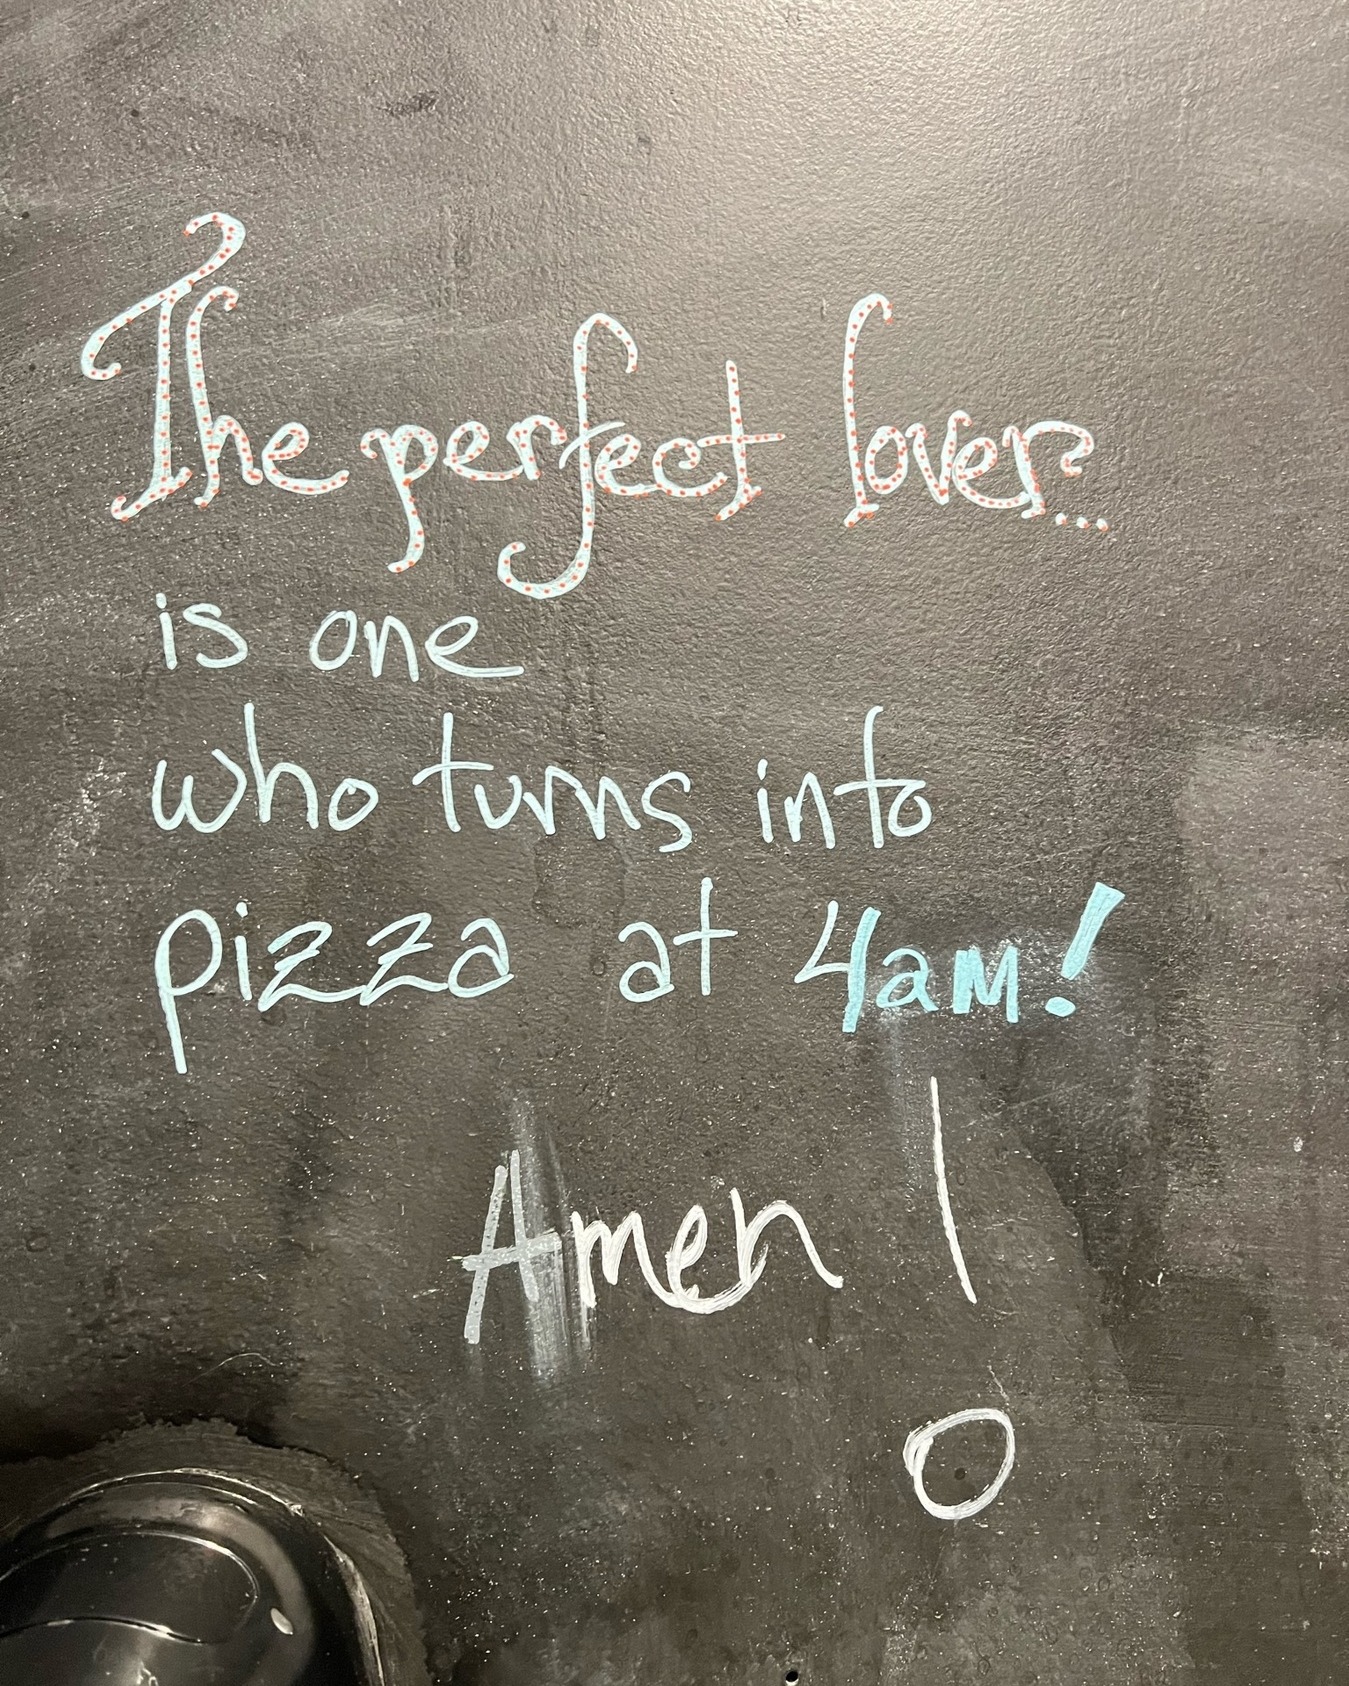 The perfect lover...
is one
who turns into
pizza at 4am!
Amen!